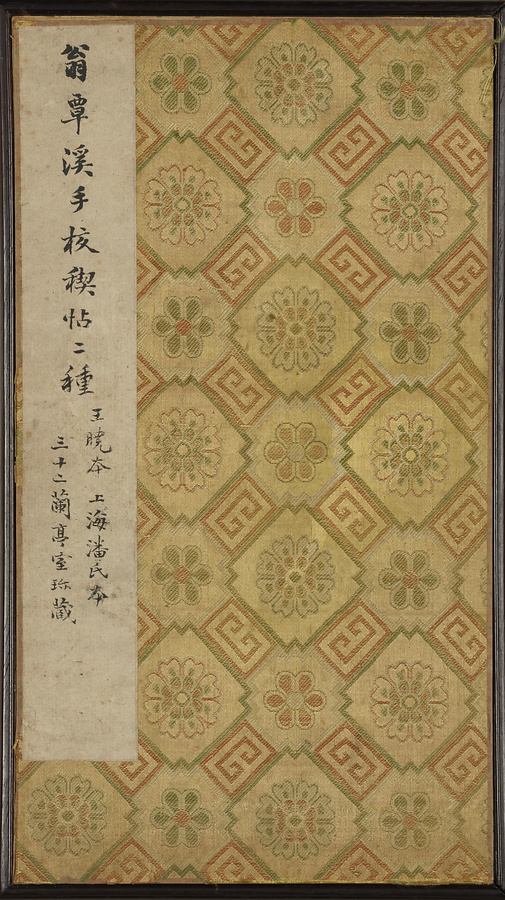 翁覃溪手校稧帖二種
王曉本 上海潘氏本
三十二蘭亭室珎藏